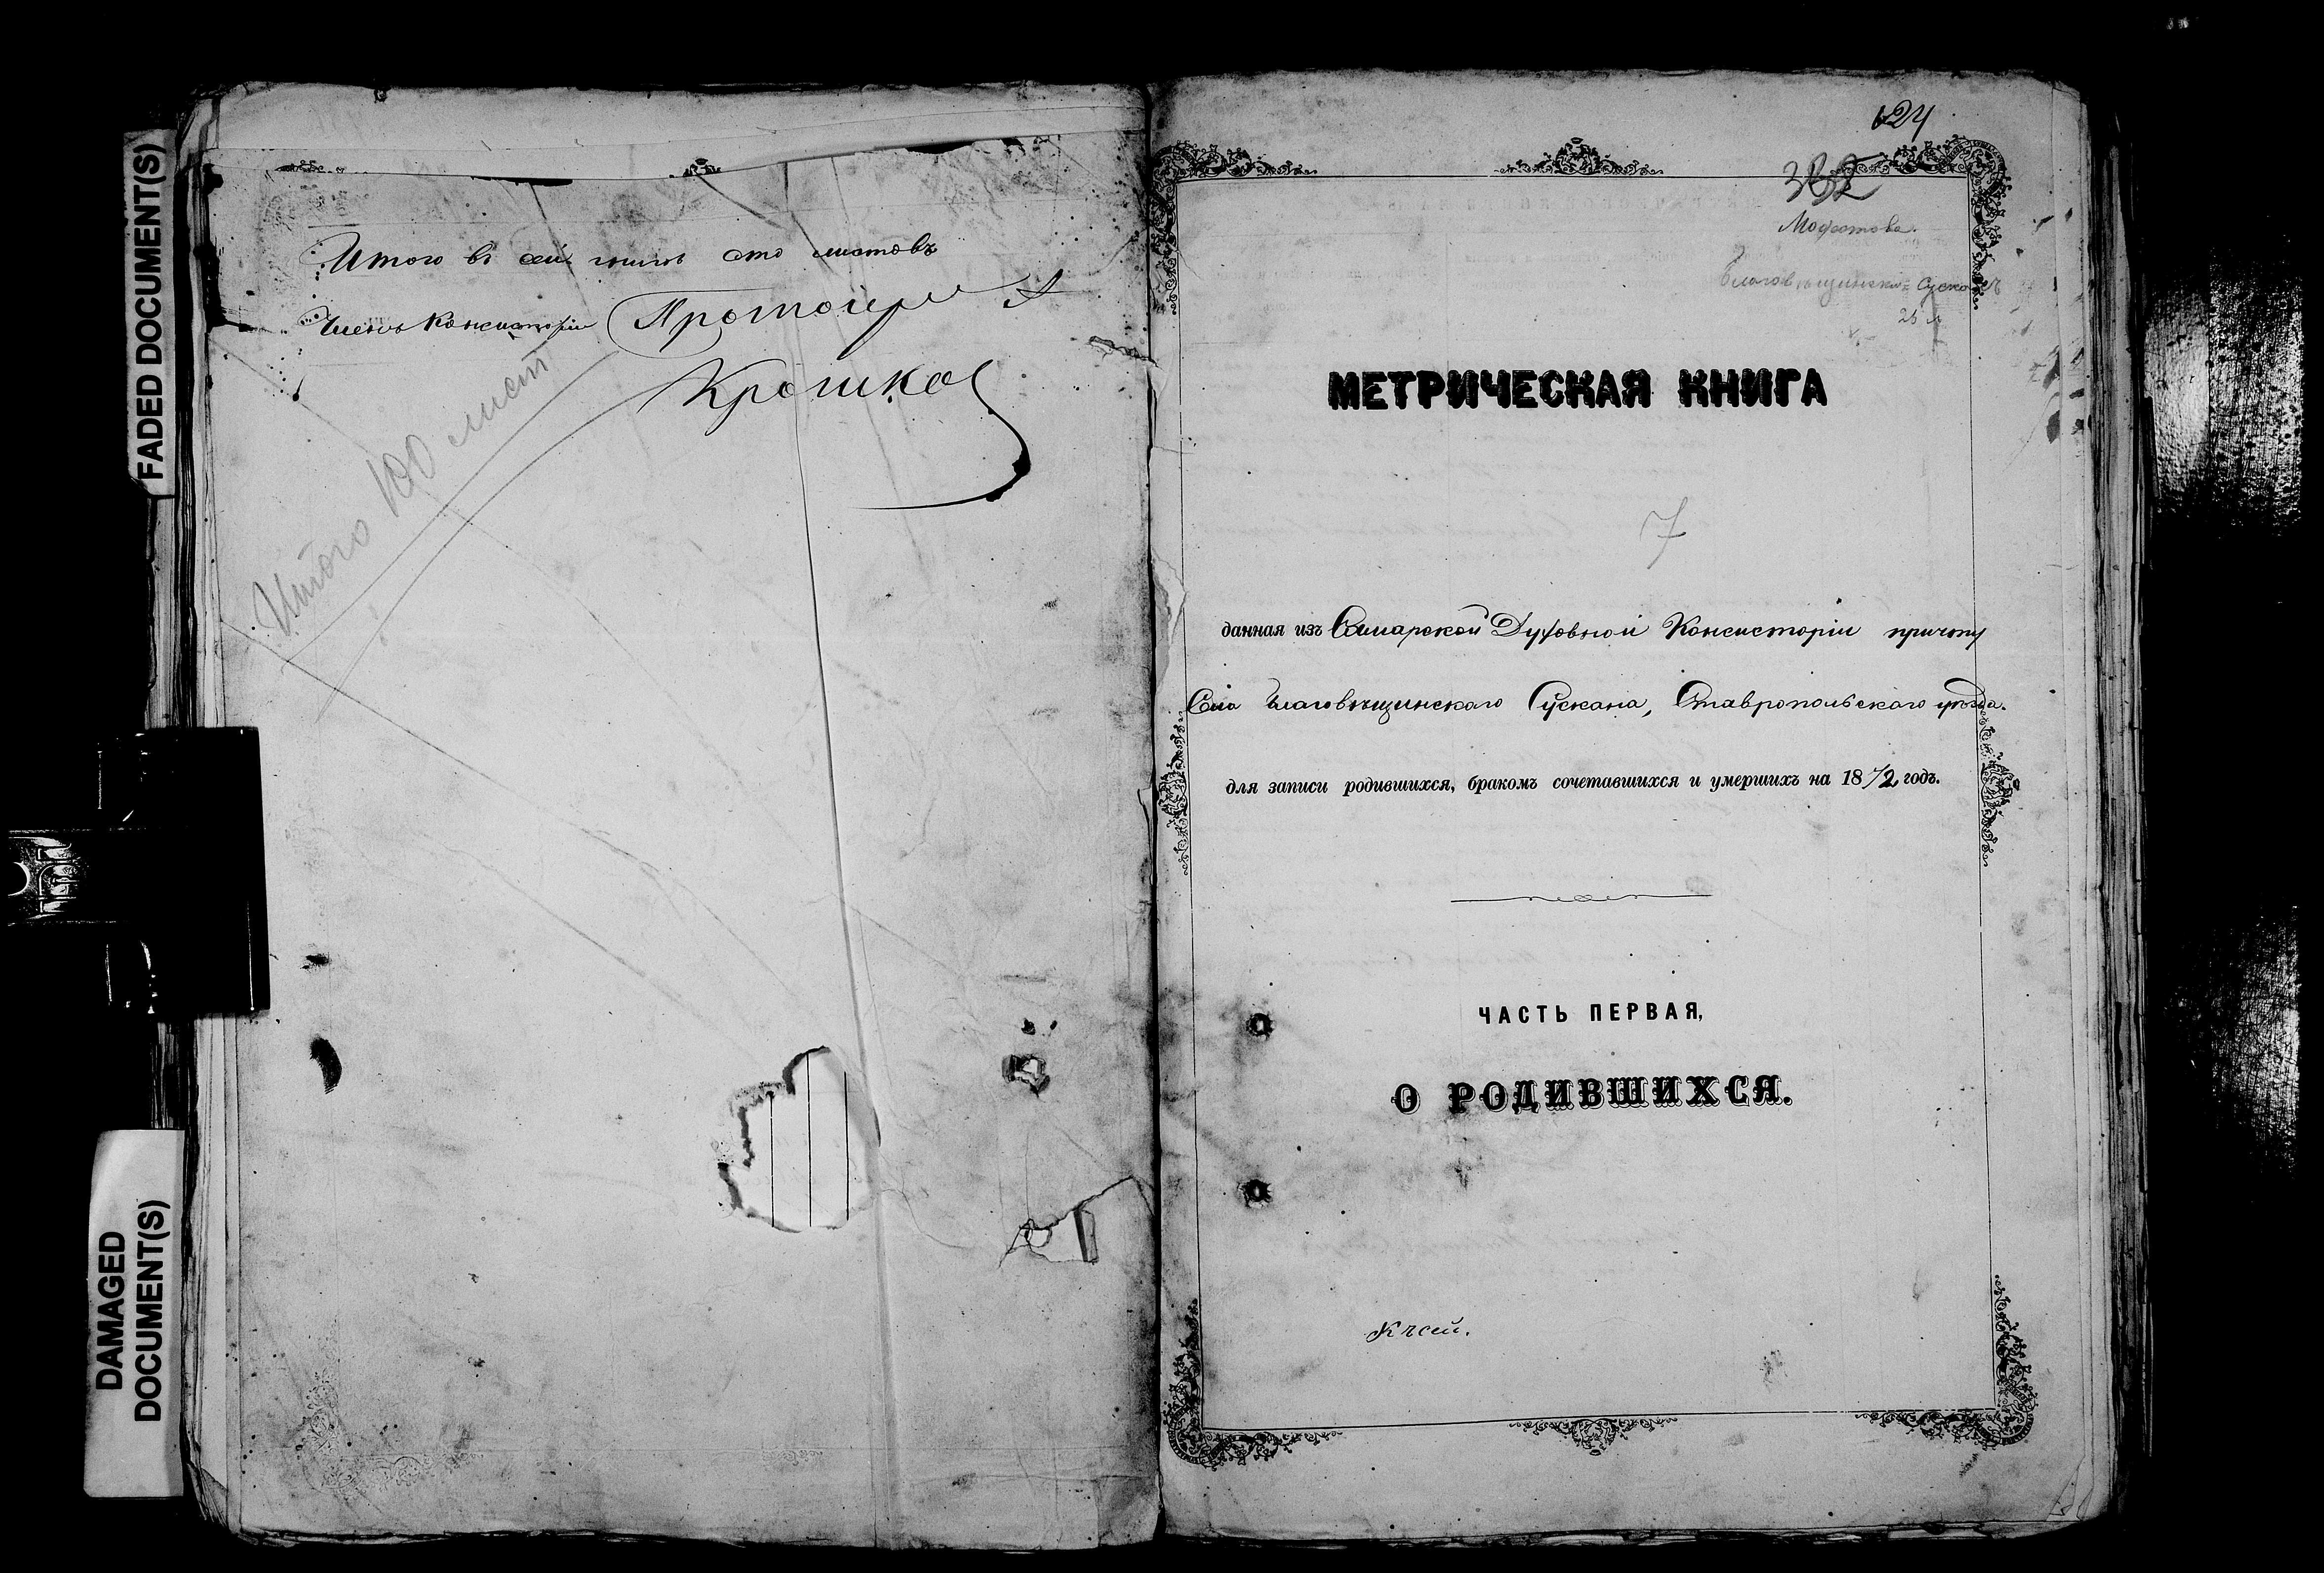 FADED DOCUMENT(S)
DAMAGED
DOCUMENT(S)
Итого въ сей книгѣ сто листовъ
Членъ Консисторіи Протоіерей А
Крошко
Итого 100 лист
624
Модестова.
Благовѣщенскій Сускан
25 л
МЕТРИЧЕСКАЯ КНИГА
7
данная изъ Самарской Духовной Консисторіи причту
Села Благовѣщенскаго Сускана, Ставропольскаго уѣзда.
для записи родившихся, бракомъ сочетавшихся и умершихъ на 1872 годъ.
ЧАСТЬ ПЕРВАЯ,
О РОДИВШИХСЯ.